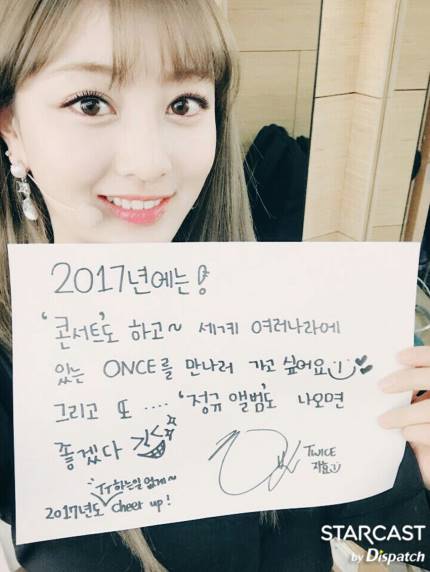 2017년에는!
'콘서트'도 하고~ 세계 여러나라에
있는 ONCE를 만나러 가고 싶어요
그리고 또 .... '정규 앨범'도 나오면
좋겠다
TT하는일 없게~
2017년도 cheer up!
TWICE
지효
STARCAST
by Dispatch